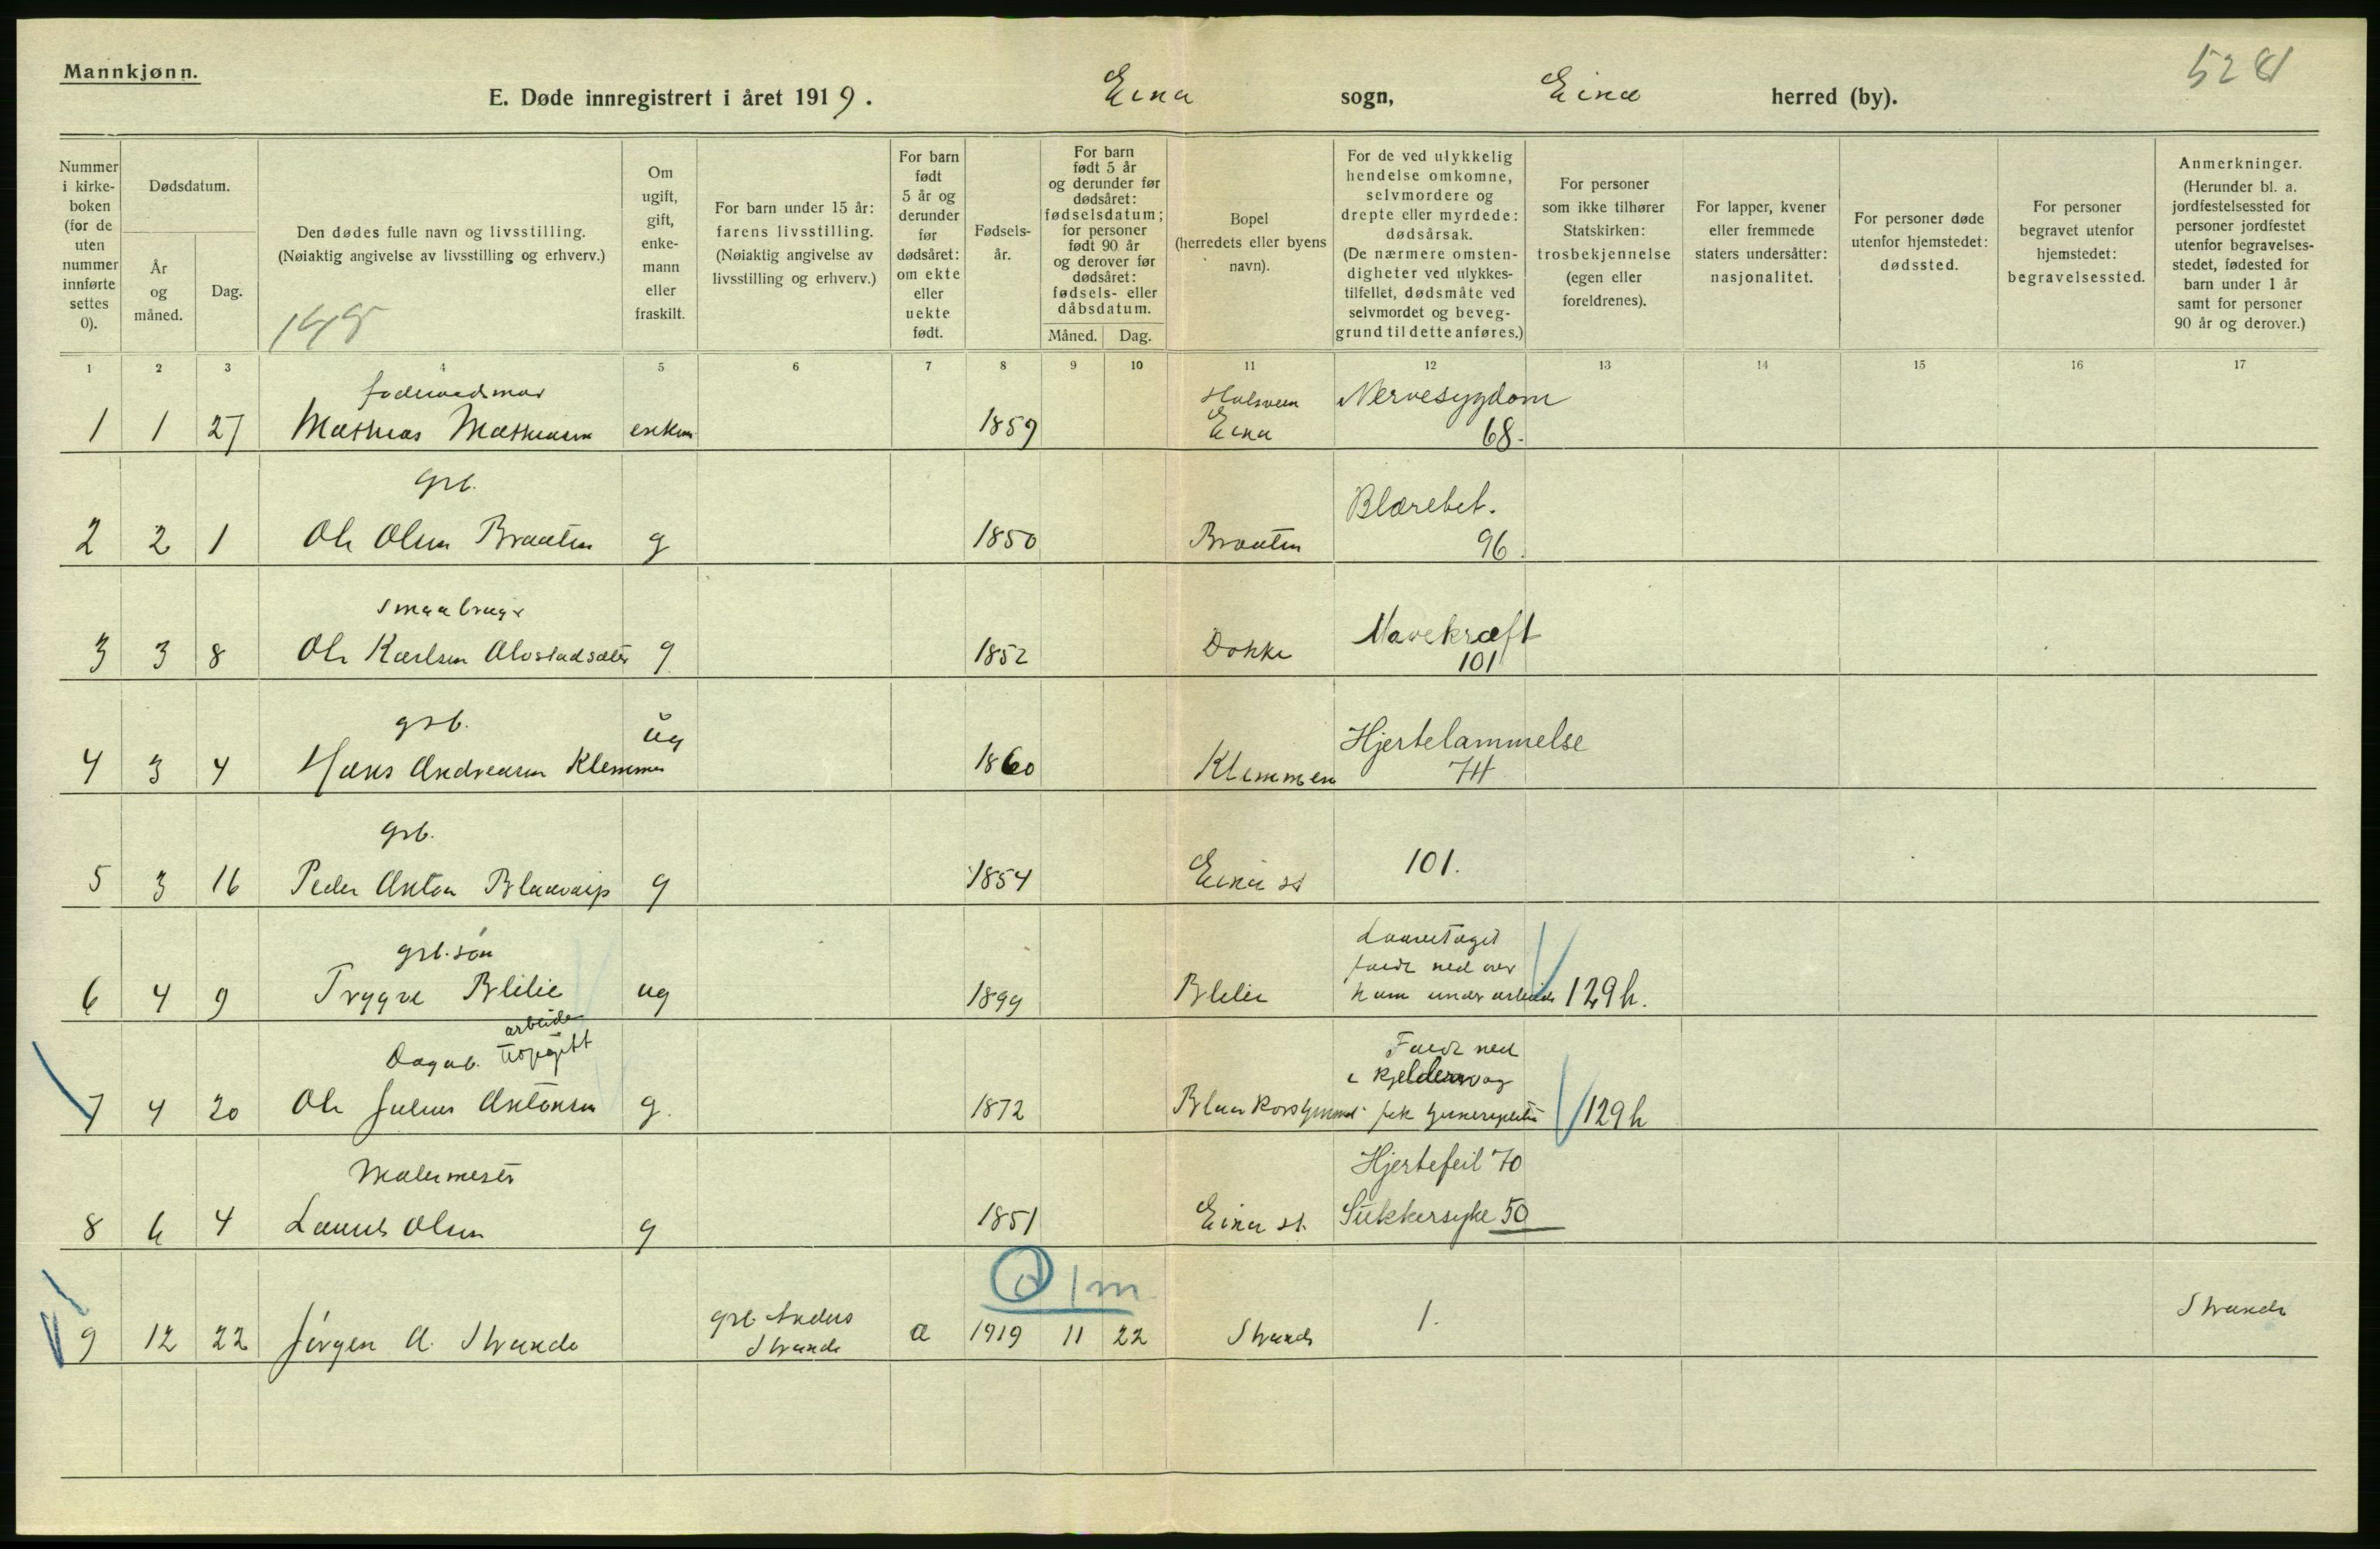 Mannkjønn.
5281
E. Døde innregistrert i året 1919. Eina sogn, Eina herred (by).
Nummer i kirke-boken (for de uten nummer innførte settes 0).
Dødsdatum.
År og måned.
Dag.
Den dødes fulle navn og livsstilling.
(Nøiaktig angivelse av livsstilling og erhverv.)
Om ugift, gift, enke-mann eller fraskilt.
For barn under 15 år: farens livsstilling.
(Nøiaktig angivelse av livsstilling og erhverv.)
For barn født 5 år og derunder før dødsåret: om ekte eller uekte født.
Fødsels-år.
For barn født 5 år og derunder før dødsåret: fødselsdatum; for personer født 90 år og derover før dødsåret: fødsels- eller dåbsdatum.
Måned. Dag.
Bopel (herredets eller byens navn).
For de ved ulykkelig hendelse omkomne, selvmordere og drepte eller myrdede: dødsårsak.
(De nærmere omsten-digheter ved ulykkes-tilfellet, dødsmåte ved selvmordet og beveg-grund til dette anføres.)
For personer som ikke tilhører Statskirken: trosbekjennelse (egen eller foreldrenes).
For lapper, kvener eller fremmede staters undersåtter: nasjonalitet.
For personer døde utenfor hjemstedet: dødssted.
For personer begravet utenfor hjemstedet: begravelsessted.
Anmerkninger.
(Herunder bl. a. jordfestelsessted for personer jordfestet utenfor begravelses-stedet, fødested for barn under 1 år samt for personer 90 år og derover.)
1 2 3 4 5 6 7 8 9 10 11 12 13 14 15 16 17
Nervesygdom
1 1 27 Mathias Mathiasen enkem 1859 Eina 68.
grb.
Blærebet.
2 2 1 Ole Olsen Braaten g 1850 Braaten 96.
Smaabruger
Mavekræft
3 3 8 Ole Karlsen g 1852 Dokke 101
grb. ug
Hjertelammelse
4 3 4 Hans Andreasen Klemmen 1860 Klemmen 74
grb.
5 3 16 Peder Anton Blaavarp g 1854 Eina st 101.
grb. søn
ned over
6 4 9 Trygve Blilie ug 1899 Blilie ham under arbeide 129 h.
arbeide
Dagarb.
ned
i kjelder og
7 4 20 Ole Julius Antonsen g. 1872 fik 129 h
Malermester
Hjertefeil 70
8 6 4 Olsen g 1851 Eina st. Sukkersyke 50
1 m
grb. Anders
Strande
1.
9 12 22 Jørgen A. Strande Strande a 1919 11 22 Strande